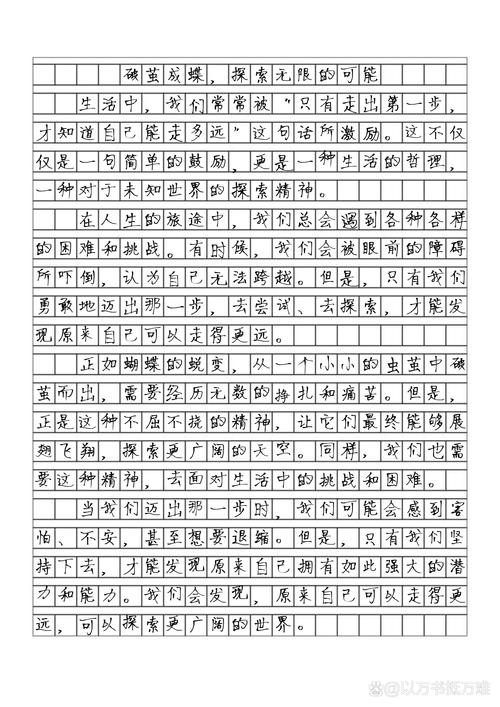 破茧成蝶，探索无限的可能
生活中，我们常常被“只有走出第一步，
才知道自己能走多远”这句话所激励。这不仅
仅是一句简单的鼓励，更是一种生活的哲理，
一种对于未知世界的探索精神。
在人生的旅途中，我们总会遇到各种各样
的困难和挑战。有时候，我们会被眼前的障碍
所吓倒，认为自己无法跨越。但是，只有我们
勇敢地迈出那一步，去尝试、去探索，才能发
现原来自己可以走得更远。
正如蝴蝶的蜕变，从一个小小的虫茧中破
茧而出，需要经历无数的挣扎和痛苦。但是，
正是这种不屈不挠的精神，让它们最终能够展
翅飞翔，探索更广阔的天空。同样，我们也需
要这种精神，去面对生活中的挑战和困难。
当我们迈出那一步时，我们可能会感到害
怕、不安，甚至想要退缩。但是，只有我们坚
持下去，才能发现原来自己拥有如此强大的潜
力和能力。我们会发现，原来自己可以走得更
远，可以探索更广阔的世界。
@以万书抵万难